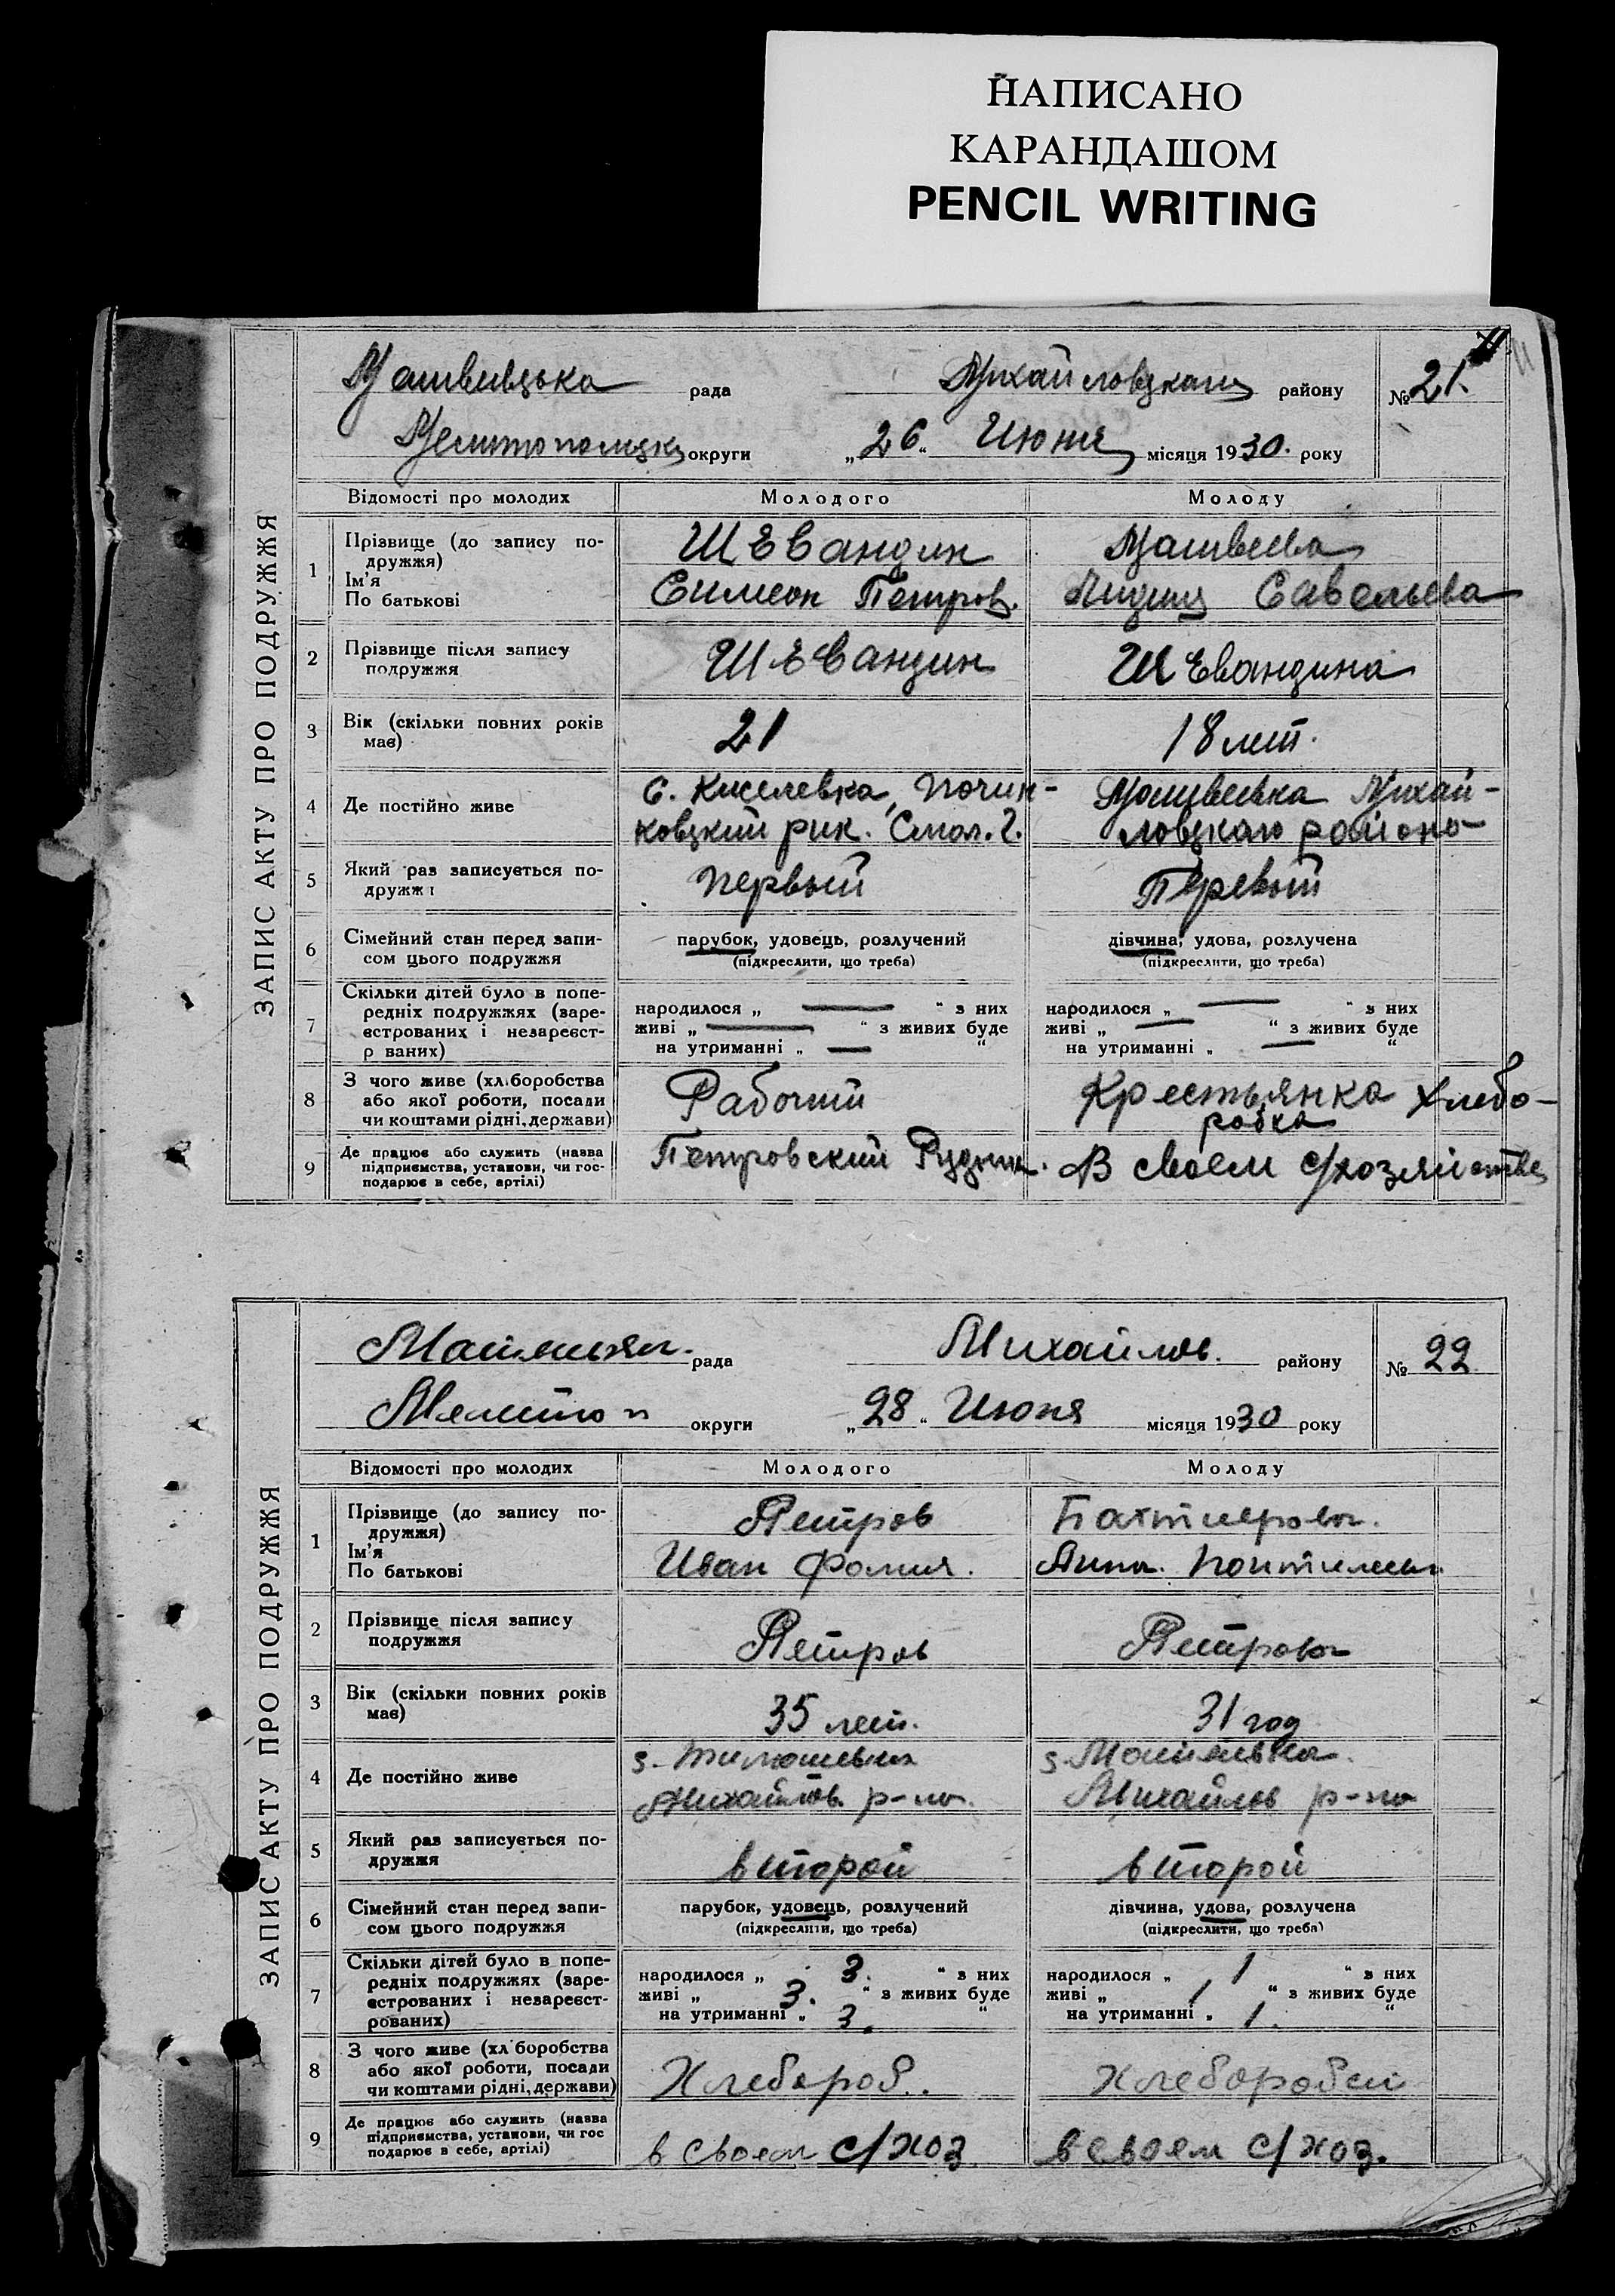 НАПИСАНО
КАРАНДАШОМ
PENCIL WRITING
ЗАПИС АКТУ ПРО ПОДРУЖЖЯ
рада Михайловцкаго району № 21.
округи „26“ Июня місяця 1930. року
Відомості про молодих Молодого Молоду
1 Прізвище (до запису по-
дружжя)
Ім'я
По батькові
Шевандин Матвеева
Симеон Петров. Лидия Савельева
2 Прізвище після запису
подружжя
Шевандин Шевандина
3 Вік (скільки повних років
має)
21 18 лет.
4 Де постійно живе
С. Киселевка, Почин-
ковцкий рик. Смол. Г.
Матвеевка Михай-
ловцкаго района
5 Який раз записується по-
дружж
Первый Перевый
6 Сімейний стан перед запи-
сом цього подружжя
парубок, удовець, розлучений
(підкреслити, що треба)
дівчина, удова, розлучена
(підкреслити, що треба)
7 Скільки дітей було в попе-
редніх подружжях (заре-
єстрованих і незареєст-
р ваних)
народилося „ — “ з них
живі „ — “ з живих буде
на утриманні „ — “
народилося „ — “ з них
живі „ — “ з живих буде
на утриманні „ — “
8 З чого живе (хліборобства
або якої роботи, посади
чи коштами рідні, держави)
Рабочий Крестьянка хлебо-
робка
9 Де працює або служить (назва
підприємства, установи, чи гос-
подарює в себе, артілі)
Петровский Рудник. В своем с/хозяйстве
ЗАПИС АКТУ ПРО ПОДРУЖЖЯ
рада Михайлов. району № 22
Мелитоп округи „28“ Июня місяця 1930 року
Відомості про молодих Молодого Молоду
1 Прізвище (до запису по-
дружжя)
Ім'я
По батькові
Петров
Иван Фомич. Анна
2 Прізвище після запису
подружжя
Петров Петрова
3 Вік (скільки повних років
має)
35 лет. 31 год
4 Де постійно живе
Михайлов. р-на.
Михайлов р-на
5 Який раз записується по-
дружжя
второй второй
6 Сімейний стан перед запи-
сом цього подружжя
парубок, удовець, розлучений
(підкреслити, що треба)
дівчина, удова, розлучена
(підкреслити, що треба)
7 Скільки дітей було в попе-
редніх подружжях (заре-
єстрованих і незареєст-
рованих)
народилося „ 3. “ з них
живі „ 3. “ з живих буде
на утриманні „ 3. “
народилося „ 1 “ з них
живі „ 1 “ з живих буде
на утриманні „ 1. “
8 З чого живе (хл боробства
або якої роботи, посади
чи коштами рідні, держави)
Хлебороб.
9 Де працює або служить (назва
підприємства, установи, чи гос
подарює в себе, артілі)
в своем с/хоз в своем с/хоз.